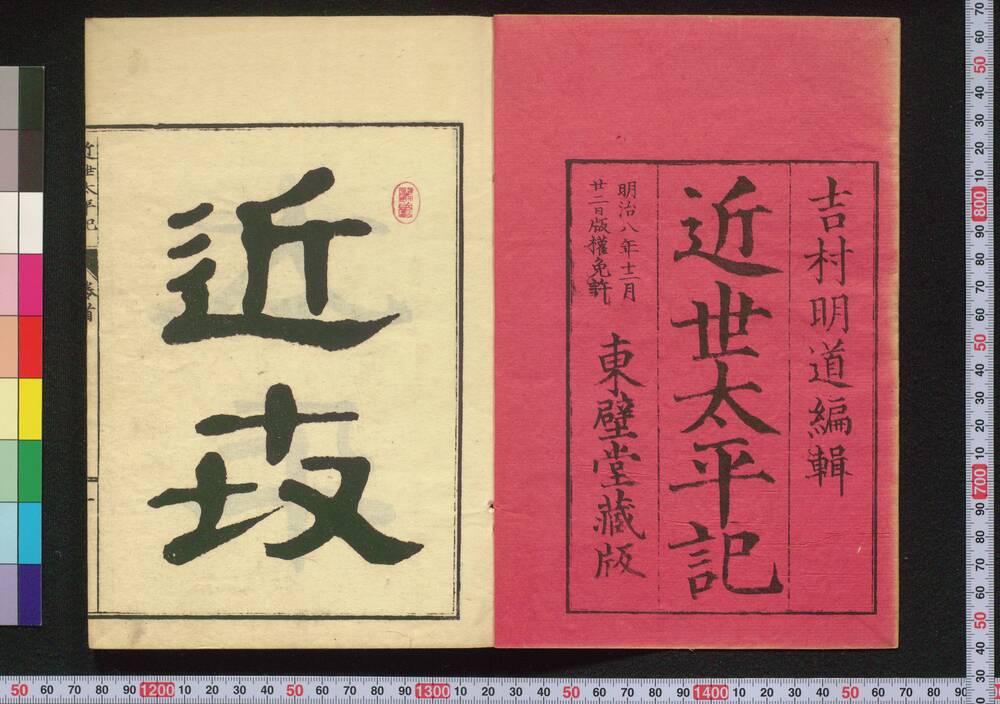 吉村明道編輯
近世太平記
明治八年十二月
廿二日版權免許
東壁堂藏版
近
近世太平記
卷首
一
50 60 70 80 90 1200 10 20 30 40 50 60 70 80 90 1300 10 20 30 40 50 60 70 80 90 1400 10 20 30 40 50 60 70 80 90
70 60 50 40 30 20 10 800 90 80 70 60 50 40 30 20 10 700 90 80 70 60 50 40 30